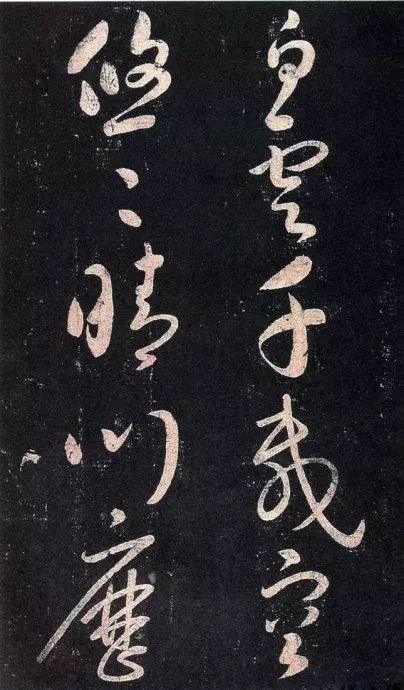 白雲千載空
悠〻晴川歷